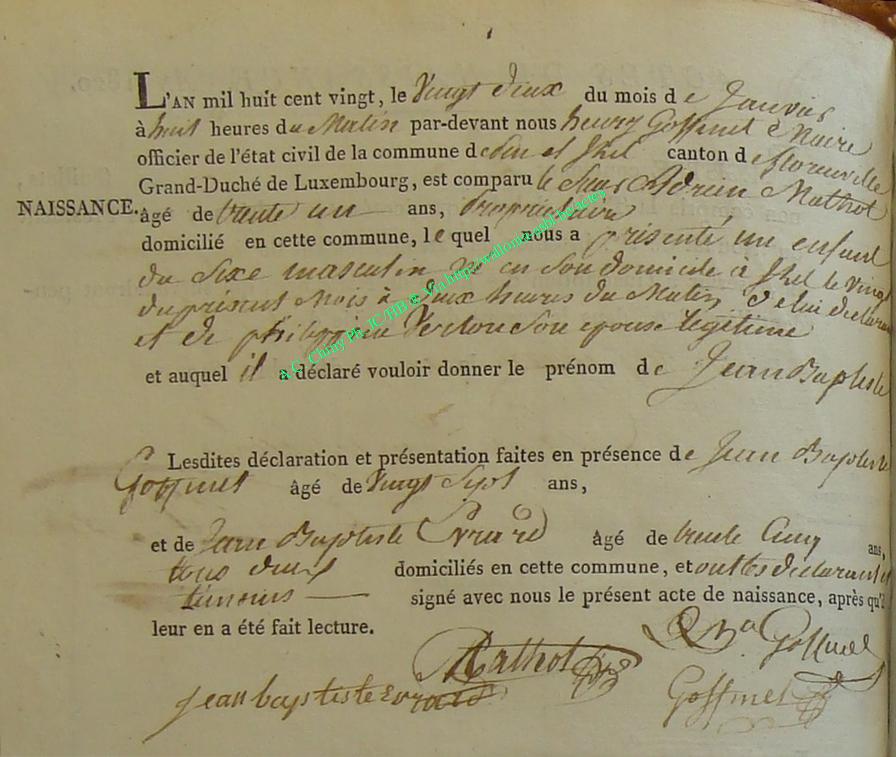 L'AN mil huit cent vingt, le vingt deux du mois de Janvier
à huit heures du Matin par-devant nous henry Goffinet Maire
officier de l'état civil de la commune de canton de florenville
Grand-Duché de Luxembourg, est comparu le Sieur Adrien Mathot
NAISSANCE.
âgé de trente un ans, Propriétaire
domicilié en cette commune, lequel nous a présenté un enfant
du sexe masculin né en son domicile à le vingt
du présent mois à deux heures du Matin, de lui déclarant
et de son epouse legitime
et auquel il a déclaré vouloir donner le prénom de Jean Baptiste
Lesdites déclaration et présentation faites en présence de Jean Baptiste
Goffinet âgé de vingt sept ans,
et de Jean Baptiste Evrard âgé de trente Cinq ans,
tous deux domiciliés en cette commune, et ont les declarant et
témoins signé avec nous le présent acte de naissance, après qu'il
leur en a été fait lecture.
Goffinet
Mathot
jean baptiste evrard
Goffinet
A.G. Chiny Ph. JC/HB & Via http://wallonica